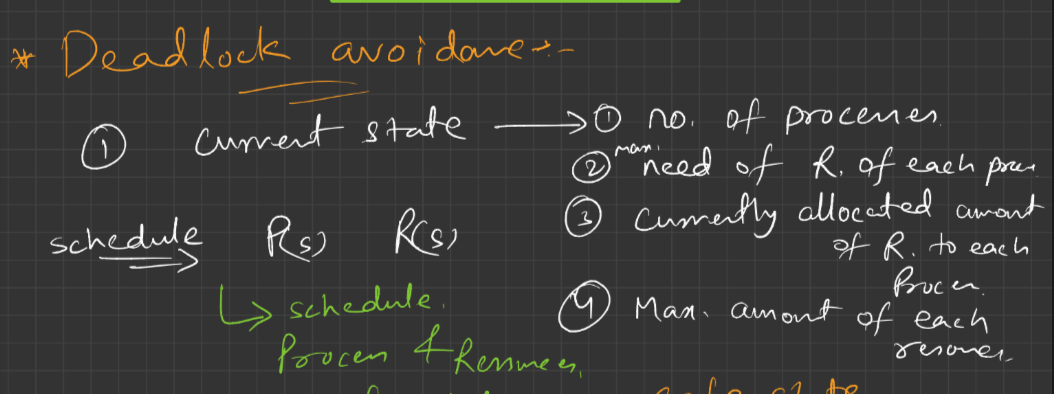 * Deadlock avoidance :-
① current state → ① no. of processes
② max. need of R. of each process
③ Currently allocated amount
of R. to each
Process.
④ Max. amount of each
resource.
schedule P(s) R(s)
↳ schedule.
Process & Resources.
safe state